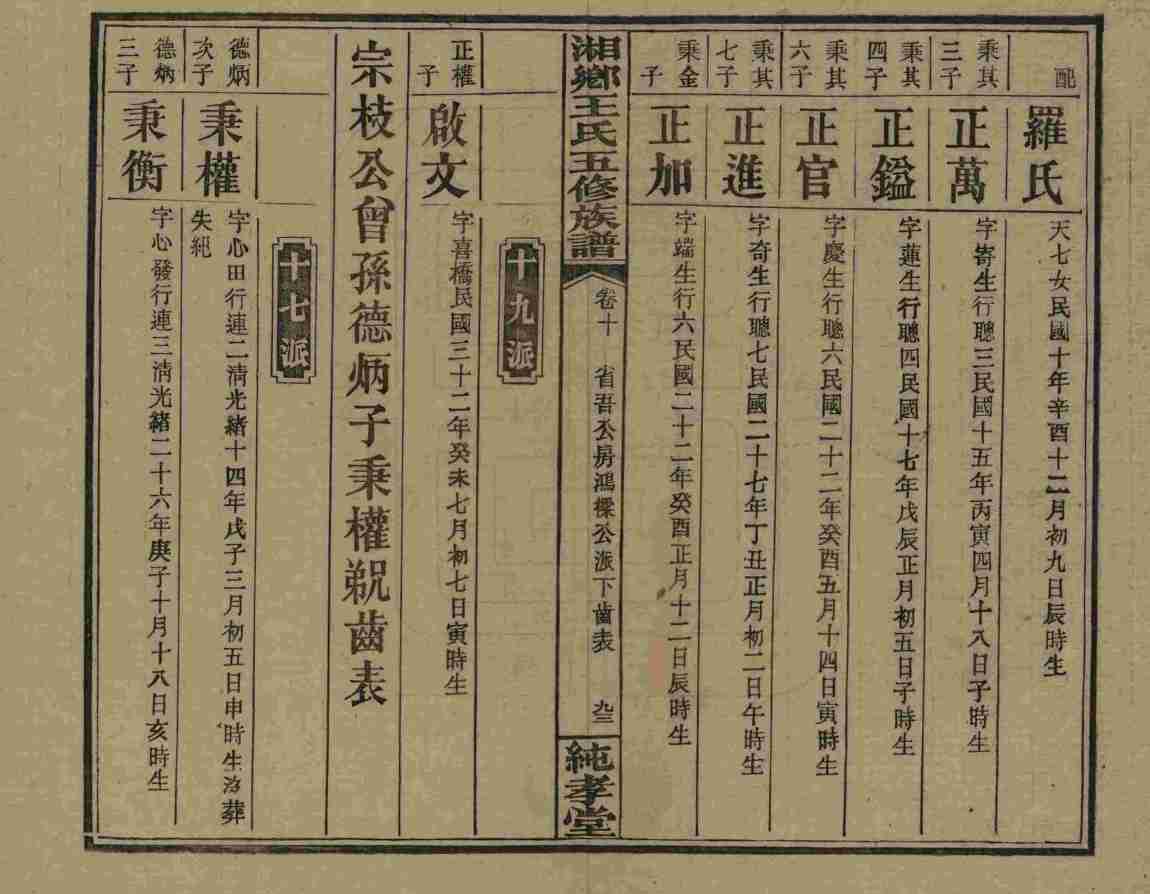 配
羅氏
天七女民國十年辛酉十二月初九日辰時生
秉其
三子
正萬
字寄生行聰三民國十五年丙寅四月十八日子時生
秉其
四子
正鎰
字蓮生行聰四民國十七年戊辰正月初五日子時生
秉其
六子
正官
字慶生行聰六民國二十二年癸酉五月十四日寅時生
秉其
七子
正進
字奇生行聰七民國二十七年丁丑正月初二日午時生
秉金
子
正加
字端生行六民國二十二年癸酉正月十二日辰時生
湘鄉王氏五修族譜
卷十
省吾公房鴻樑公派下齒表
九三
純孝堂
十九派
正權
子
啟文
字喜橋民國三十二年癸未七月初七日寅時生
宗枝公曾孫德炳子秉權覣齒表
十七派
德炳
次子
秉權
字心田行連二清光緒十四年戊子三月初五日申時生歿葬
失紀
德炳
三子
秉衡
字心發行連三清光緒二十六年庚子十月十八日亥時生